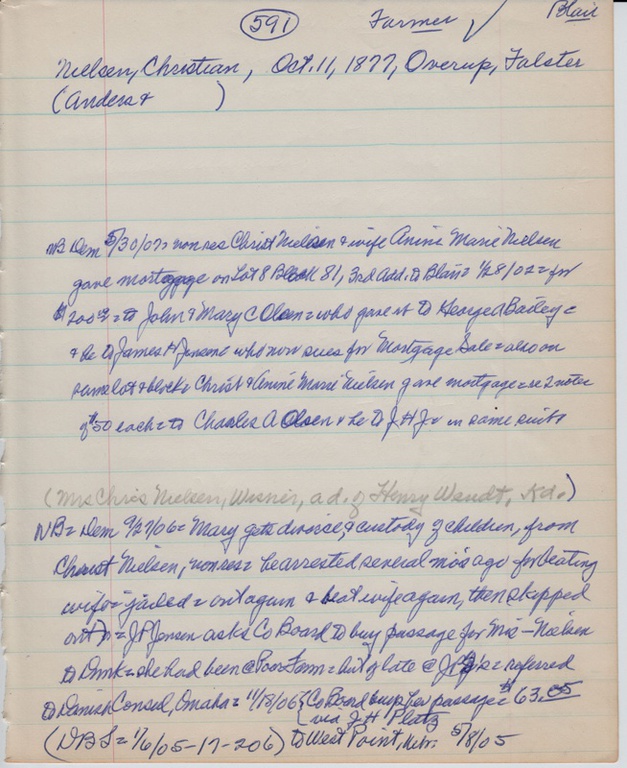 591 Farmer ✓ Blair
Nielsen, Christian, Oct. 11, 1877, Overup, Falster
(Anders + )
NB Dem 5/30/07= nonres Christ Nielsen + wife Anine Marie Nielsen
gave mortgage on Lot 8 Block 81, 3rd Add. to Blair= 1/28/02= for
$200 = to John + Mary C Olsen= who gave it to George A Bailey=
+ he to James H Jensen= who now sues for Mortgage Sale= also on
same lot + block= Christ + Anine Marie Nielsen gave mortgage= 2 notes
of $50 each= to Charles A Olsen + he to J H J= in same suit
(Mrs Chris Nielsen, Wisner, a d. of Henry Wendt, Kd.)
NB= Dem 9/27/06= Mary gets divorce, + custody of children, from
Christ Nielsen, nonres= he arrested several mos ago for beating
wife= jailed= out again + beat wife again, then skipped
out= J H Jensen asks Co Board to buy passage for Mrs Nielsen
to Dmk= she had been @ Poor Farm= but of late @ = referred
to Danish Consul, Omaha= 11/18/06 { Co Board buys her passage= $63.05
{ via J. H. Platz
(DBS= 1/6/05-17-206) to West Point, Nebr. 5/8/05